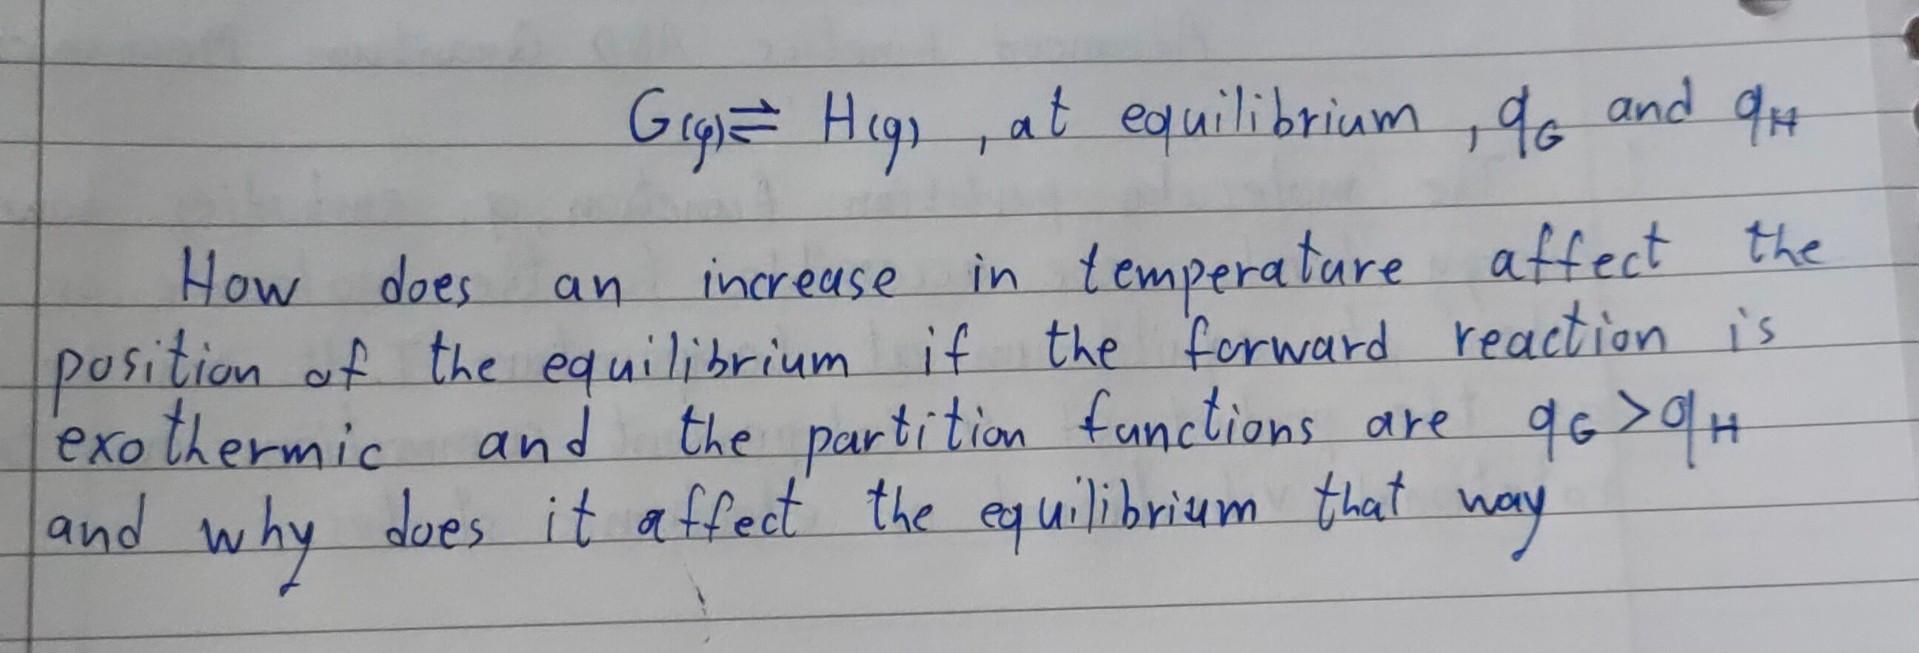 G(g) ⇌ H(g) , at equilibrium , qG and qH
How does an increase in temperature affect the
position of the equilibrium if the forward reaction is
exothermic and the partition functions are qG > qH
and why does it affect the equilibrium that way